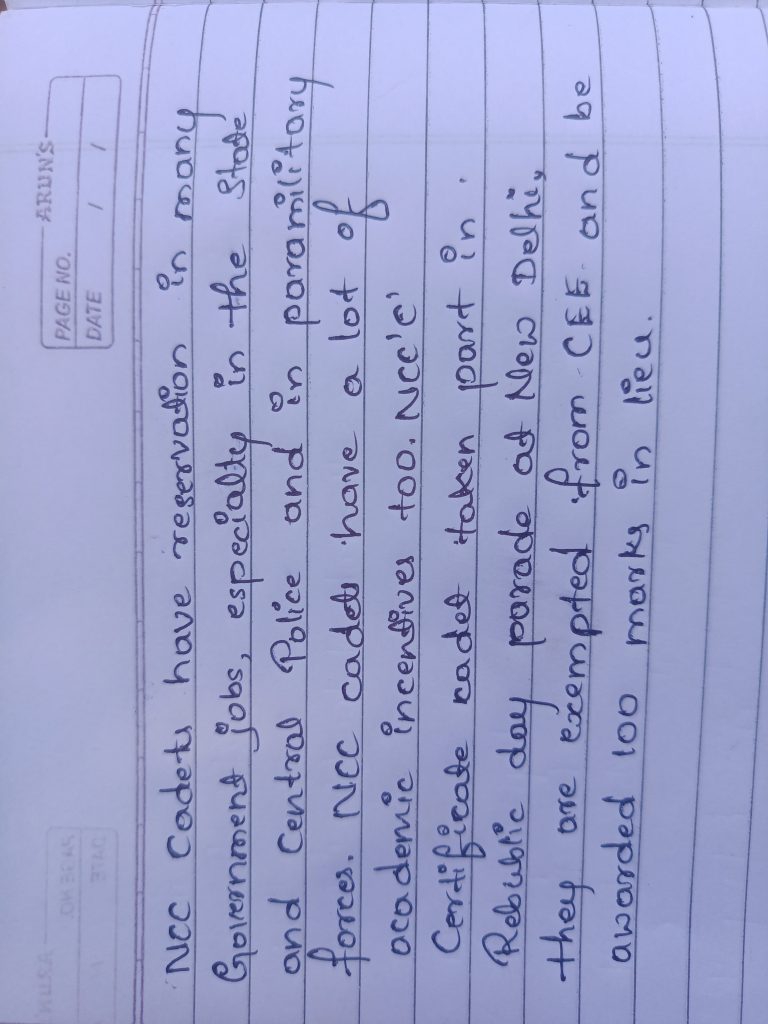 ARUN'S
PAGE NO.
DATE / /
NCC Cadets have reservation in many
Government jobs, especialty in the State
and Central Police and in paramilitary
forces. NCC cadets have a lot of
academic incentives too. NCC'C'
Certificate cadet taken part in.
Rebublic day parade at New Delhi,
they are exempted from CEE and be
awarded 100 marks in lieu.